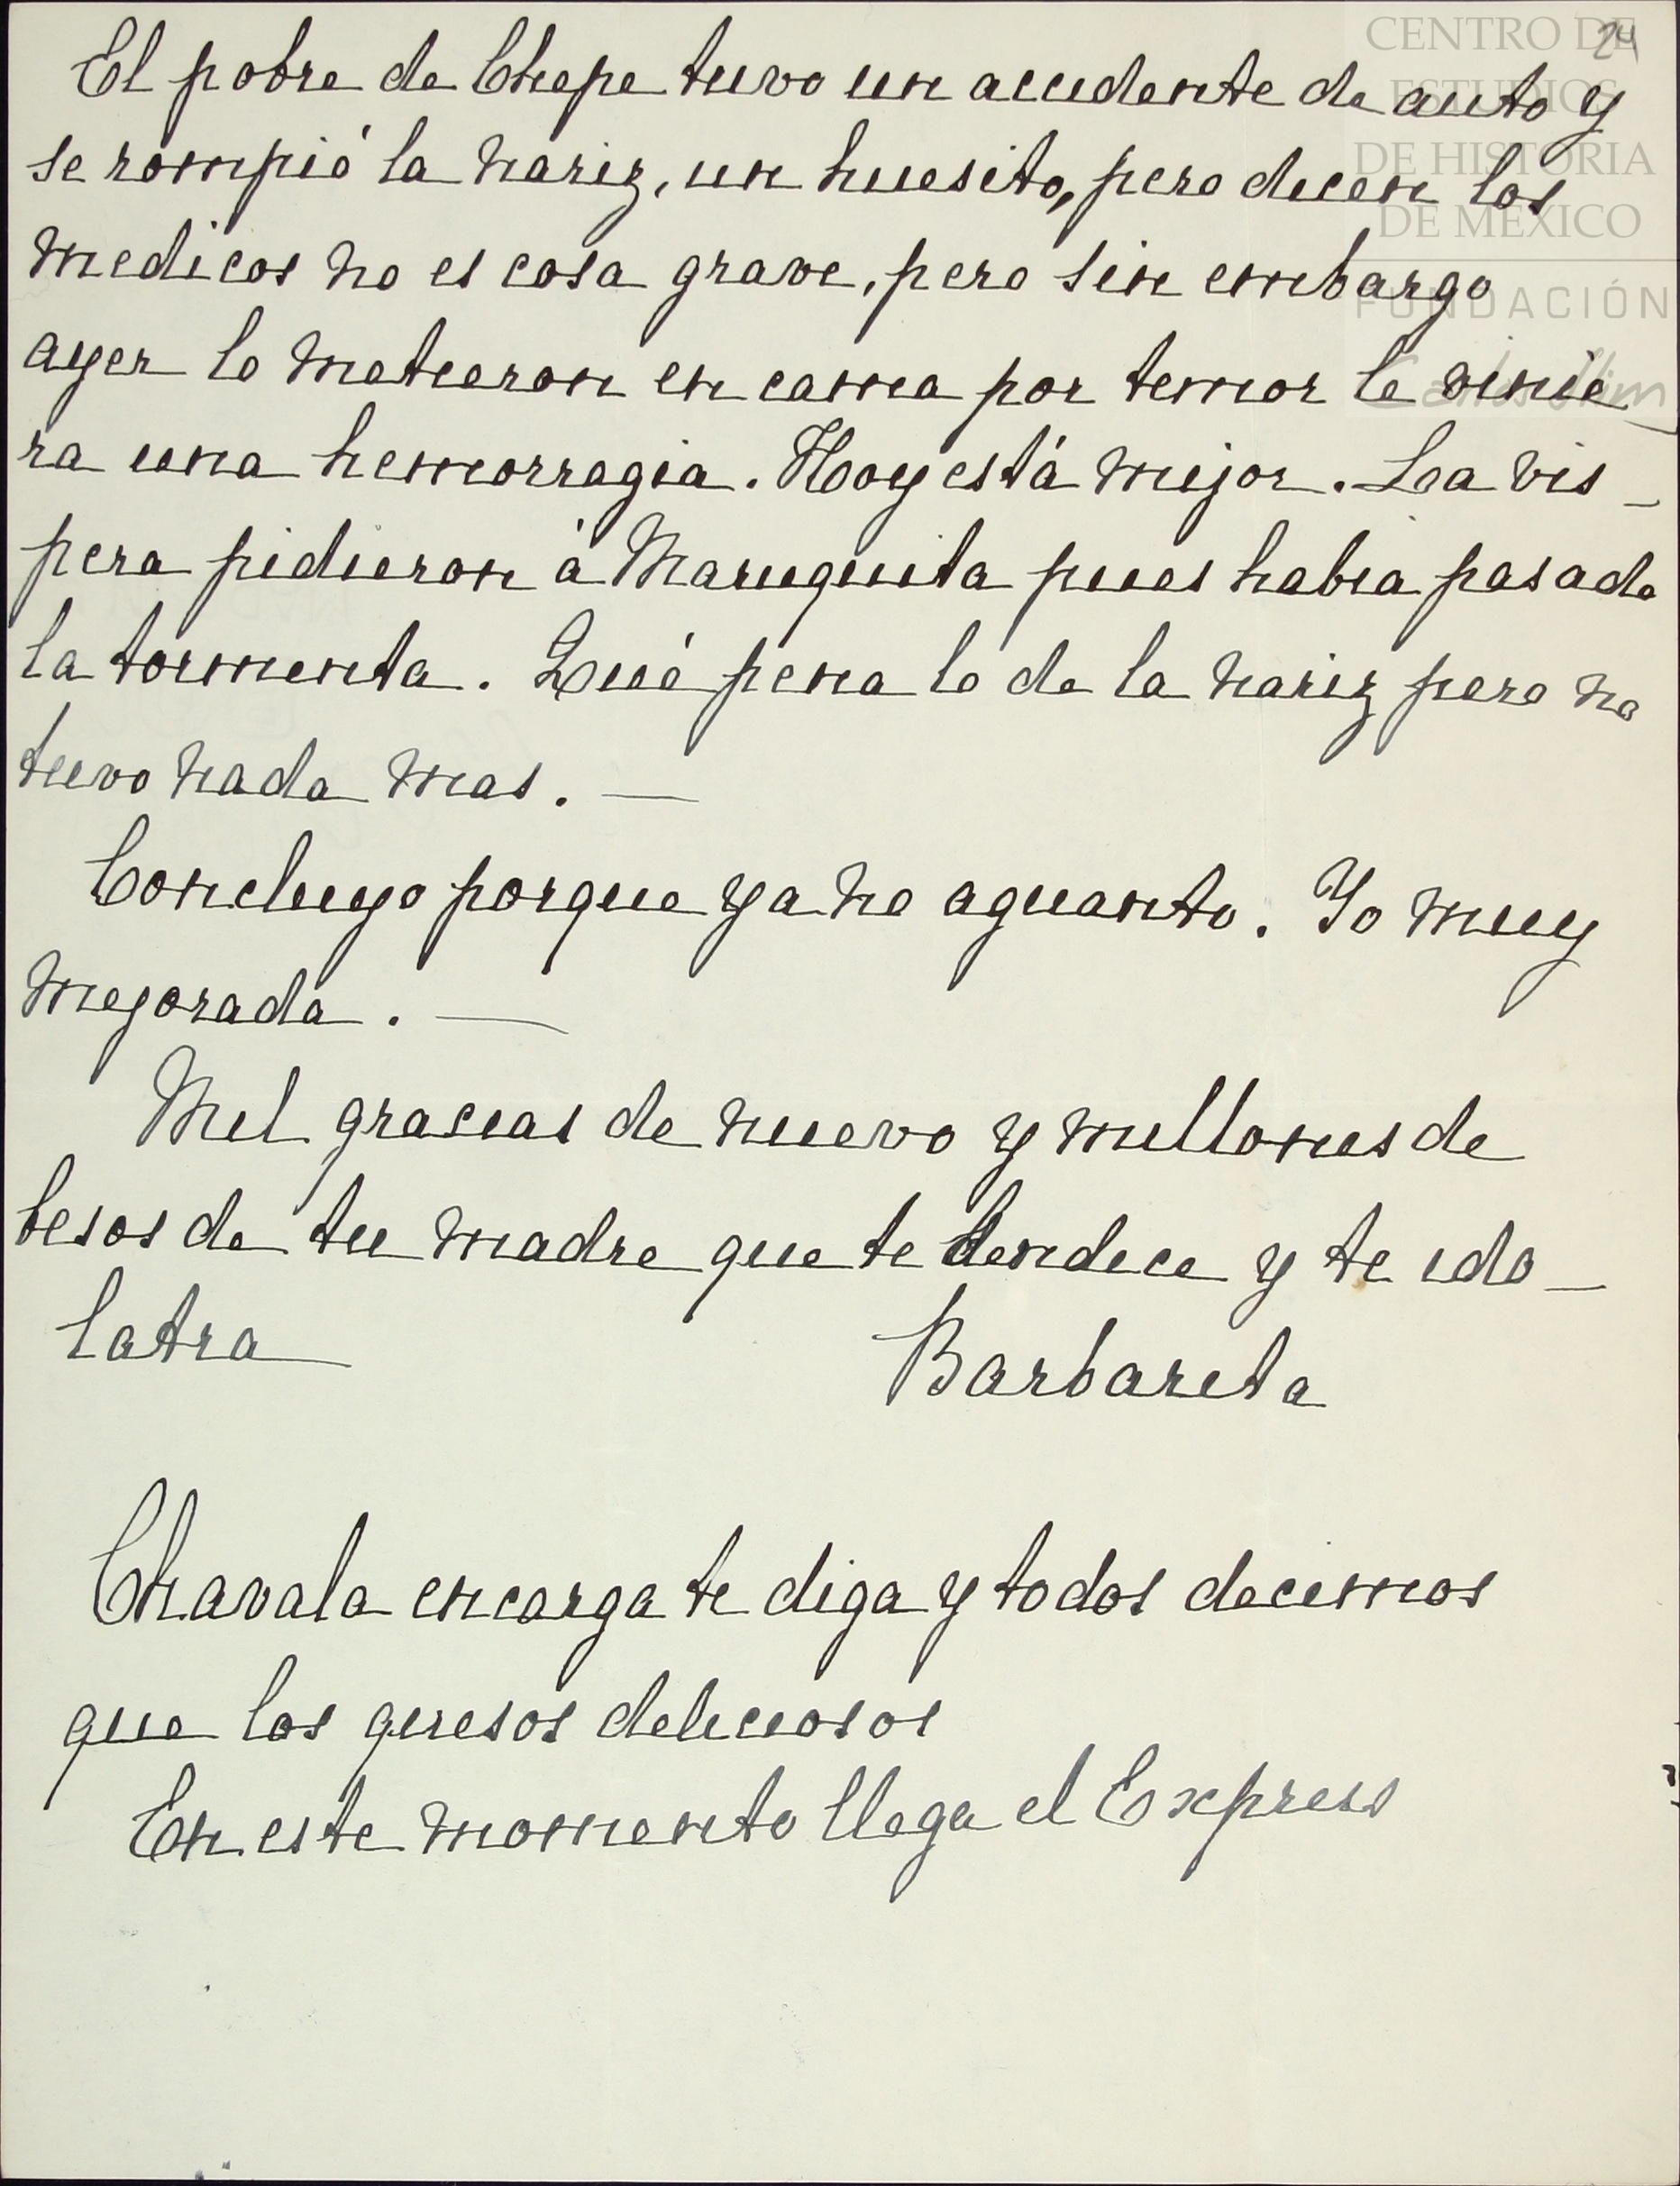 24
CENTRO DE
ESTUDIOS
DE HISTORIA
DE MÉXICO
FUNDACIÓN
Carlos Slim
El pobre de Chepe tuvo un accidente de auto y
se rompió la nariz, un huesito, pero dicen los
medicos no es cosa grave, pero sin embargo
ayer lo metieron en cama por temor le vinie
ra una hemorragia. Hoy está mejor. La vis_
pera pidieron á Maruquita pues habia pasado
la tormenta. Qué pena lo de la nariz pero no
tuvo nada mas. —
Concluyo porque ya no aguanto. Yo muy
mejorada. —
Mil gracias de nuevo y millones de
besos de tu madre que te bendice y te ido_
latra
Barbarita
Chavala encarga te diga y todos decimos
que los quesos deliciosos
En este momento llega el Express